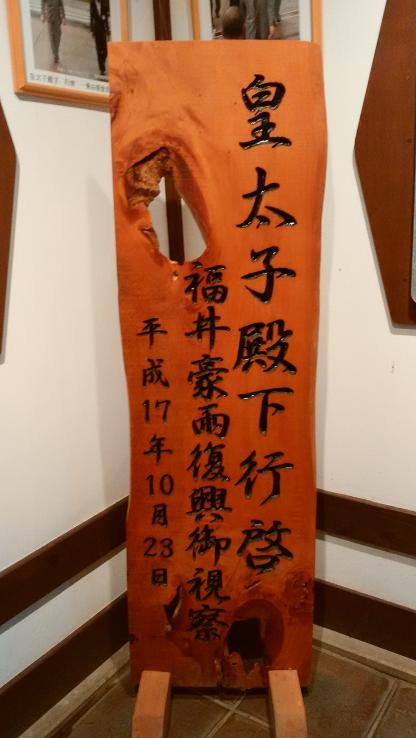 皇太子殿下行啓
福井豪雨復興御視察
平成17年10月23日